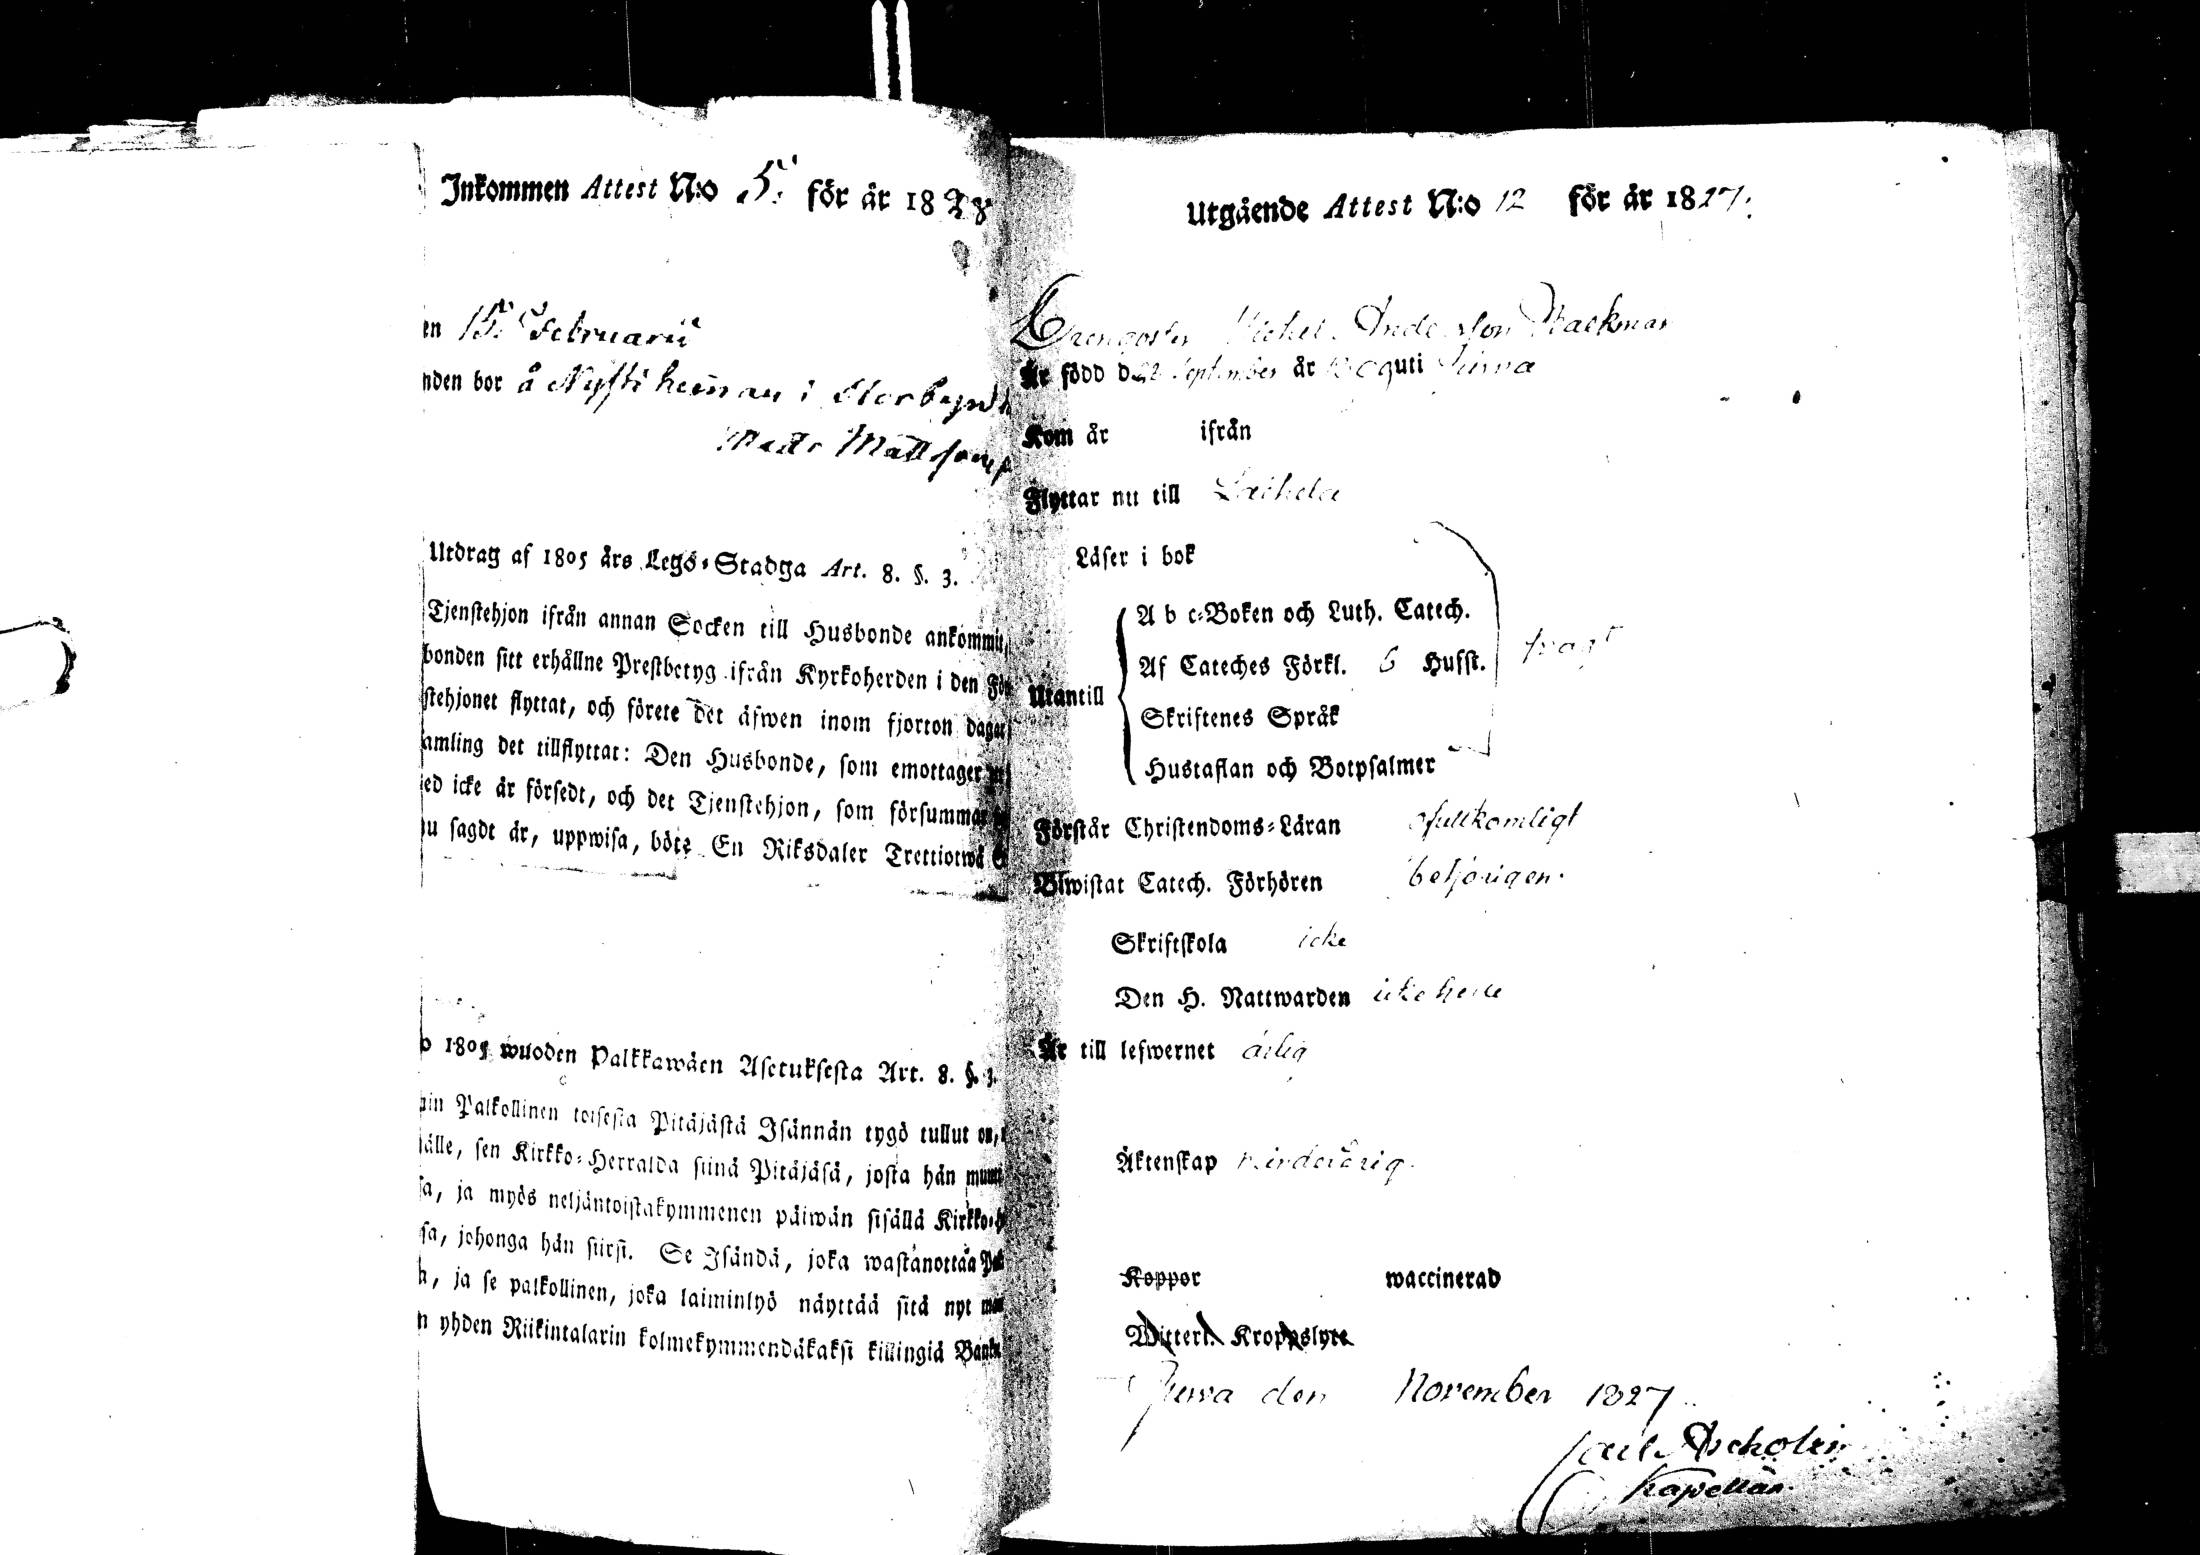 Inkommen Attest N:o 5. för år 1828
en 15. Februarii
nden bor å Nysti heman i Storbyn
Matts Mattson
Utdrag af 1805 års Legö-Stadga Art. 8. §. 3.
Tjenstehjon ifrån annan Socken till Husbonde ankommit,
bonden sitt erhållne Prestbetyg ifrån Kyrkoherden i den För
stehjonet flyttat, och förete det äfwen inom fjorton dagar
amling det tillflyttat: Den Husbonde, som emottager
ed icke är försedt, och det Tjenstehjon, som försummar
nu sagdt är, uppwisa, böte En Riksdaler Trettiotwå
o 1805 wuoden Palkkawäen Asetuksesta Art. 8. §. 3.
uin Palkollinen toisesta Pitäjästä Isännän tygö tullut on,
jälle, sen Kirkko-Herralda siinä Pitäjäsä, josta hän muut
sa, ja myös neljäntoistakymmenen päiwän sisällä Kirkko-H
sa, johonga hän siirsi. Se Isändä, joka wastanottaa Pal
n, ja se palkollinen, joka laiminlyö näyttää sitä nyt
n yhden Riikintalarin kolmekymmendäkaksi killingiä Banko
Utgående Attest N:o 12 för år 1827.
Drengosten Michel Andersson Backman
Är född d. 22 September år 1809 uti Jurva
Kom år ifrån
Flyttar nu till Laihela
Läser i bok
A b c-Boken och Luth. Catech.
Af Cateches Förkl. 6 Husst. svagt
Utantill
Skriftenes Språk
Hustaflan och Botpsalmer
Förstår Christendoms-Läran ofullkomligt
Biwistat Catech. Förhören behörigen.
Skriftskola icke
Den H. Nattwarden icke heller
Är till lefwernet ärlig
Äktenskap minderårig.
Koppor waccinerad
Witterl. Kroppslyte
Jurva den November 1827
Carl Ascholin
Kapellan.